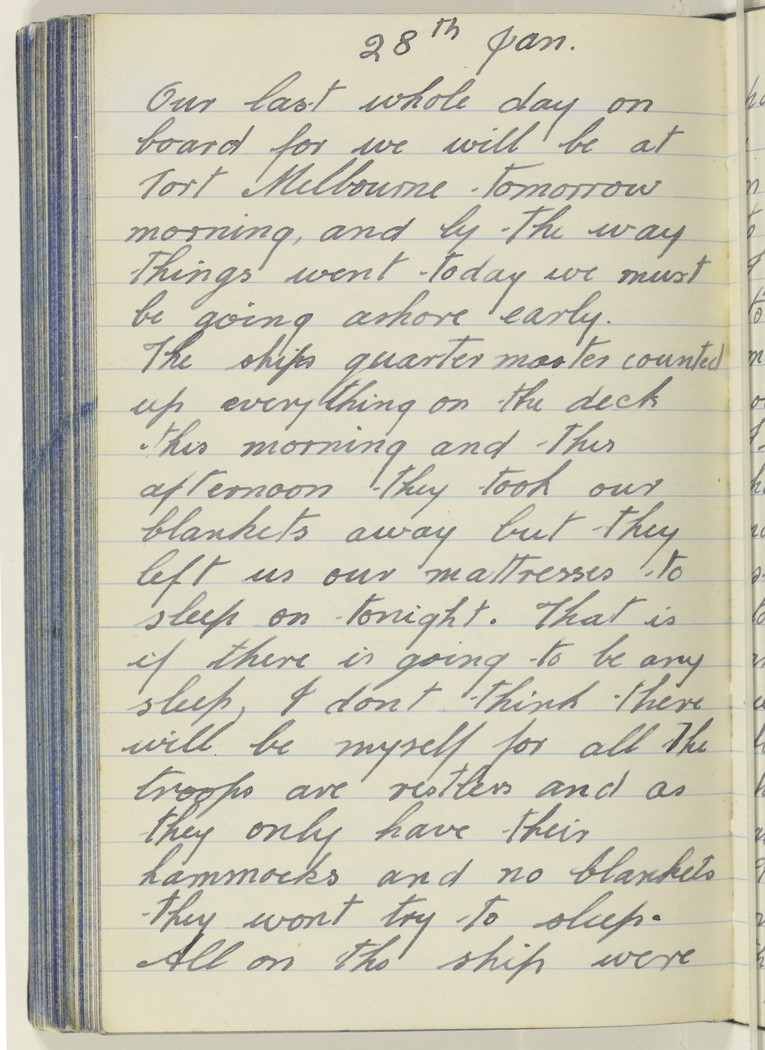 28th Jan.
Our last whole day on
board for we will be at
Port Melbourne tomorrow
morning, and by the way
things went today we must
be going ashore early.
The ships quarter master counted
up everything on the deck
this morning and this
afternoon they took our
blankets away but they
left us our mattresses to
sleep on tonight. That is
if there is going to be any
sleep, I dont think there
will be myself for all the
troops are restless and as
they only have their
hammocks and no blankets
they wont try to sleep.
All on the ship were